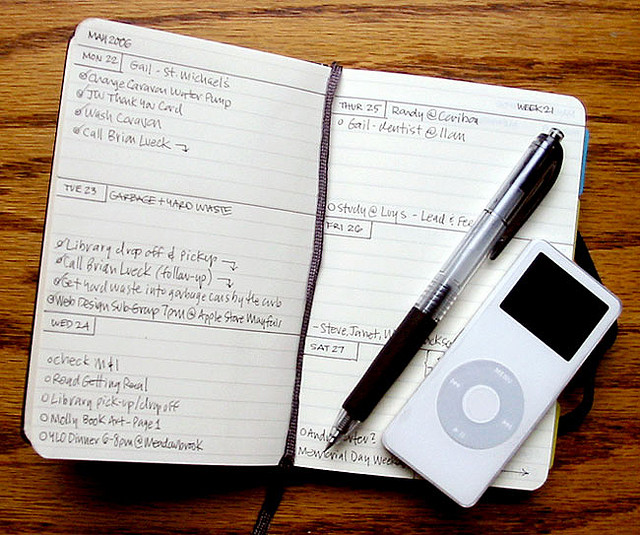 MAY 2006
MON 22 Gail - St. Michael's
Change Caravan Water Pump
JW Thank You Card
Wash Caravan
Call Brian Lueck
TUE 23 GARBAGE + YARD WASTE
Library drop off & pickup
Call Brian Lueck (follow-up)
Get hard waste into garbage cans by the curb
Web Design Sub-Group 7pm @ Apple Store Mayfair
WED 24
check M+1
Read Getting Real
Library pick-up/dropoff
Molly Book Art - Page 1
YLO Dinner 6-8pm @ Meadowbrook
WEEK 21
THUR 25 Randy @ Caribou
Gail - dentist @ 11am
Study @ Luys - Lead &
FRI 26
- Steve, Janet,
SAT 27
Memorial Day
MENU